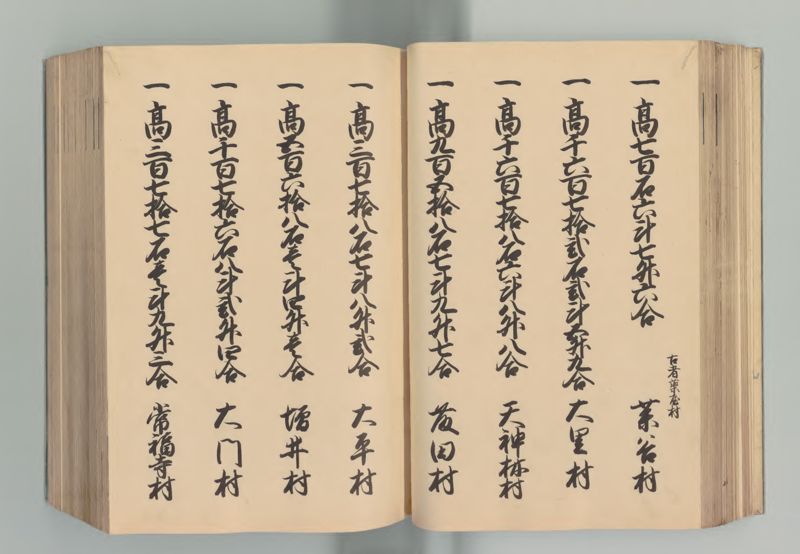 古者薬屋村
一高七百石六斗七升六合 薬谷村
一高千六百七拾弐石弐斗五升九合 大里村
一高千六百七拾八石六斗八升八合 天神林村
一高九百五拾八石七斗九升七合 藤田村
一高三百七拾八石七斗八升弐合 大平村
一高五百六拾八石壱斗四升壱合 増井村
一高千百七拾六石八斗弐升四合 大門村
一高三百七拾七石壱斗九升三合 常福寺村